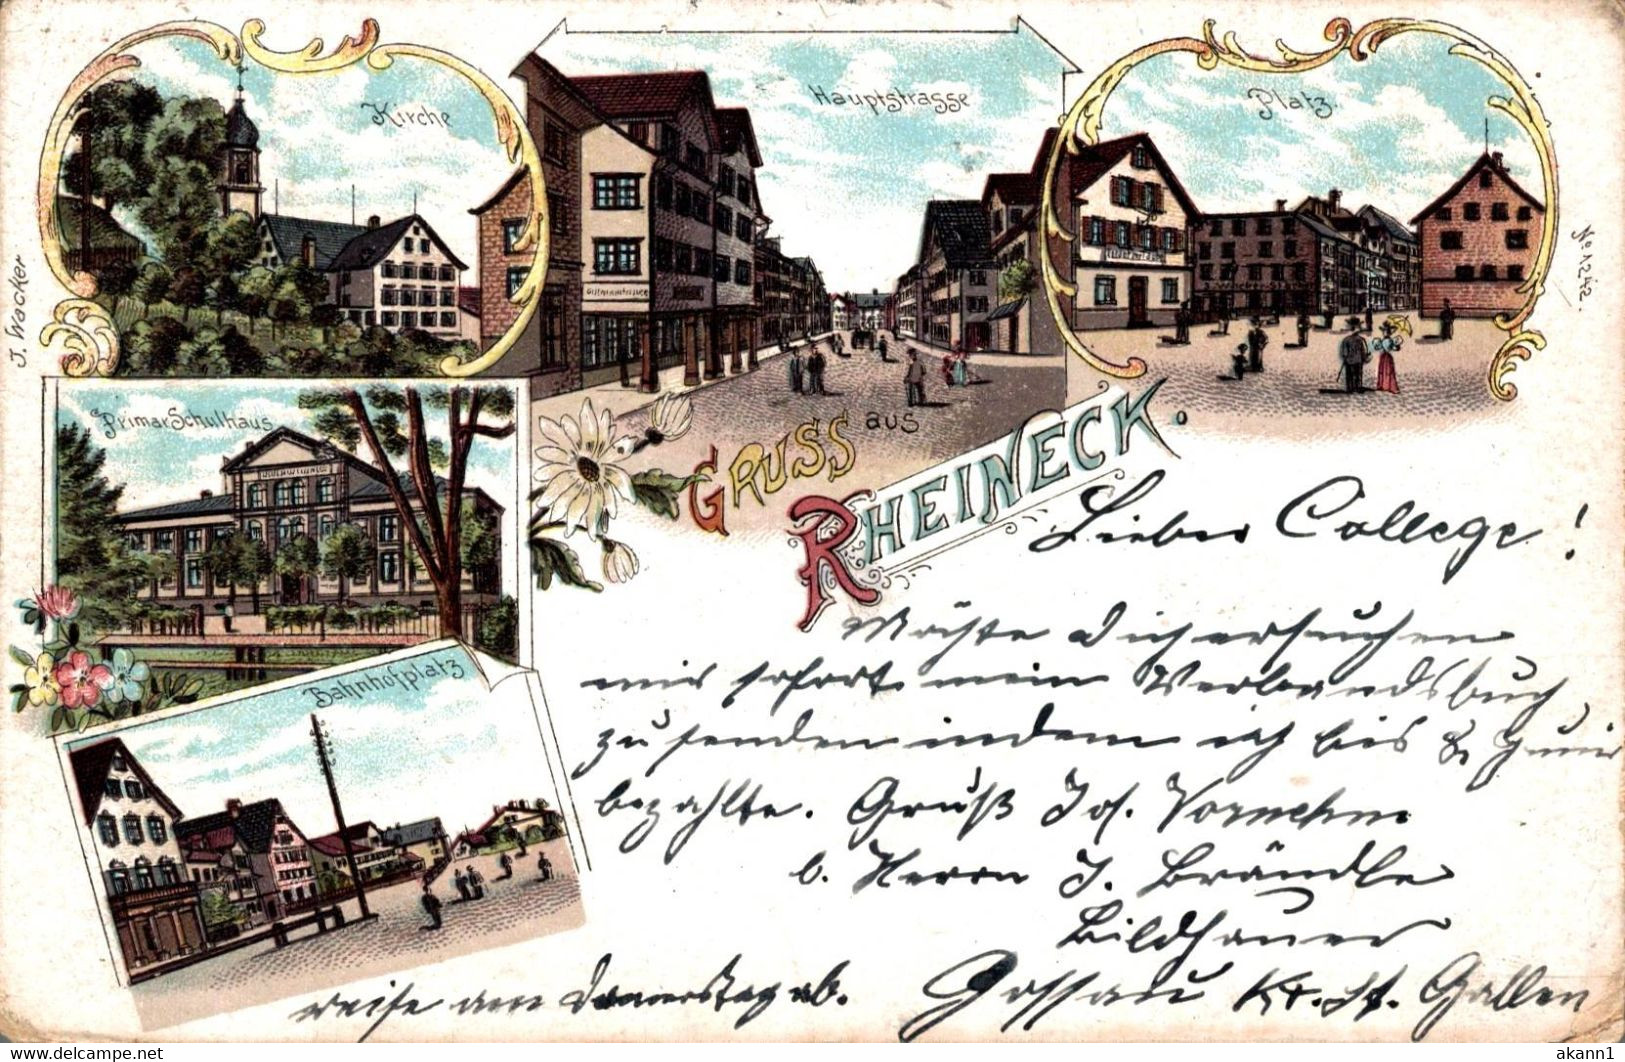 Kirche
Hauptstrasse
Platz.
J. Wacker
No 1242.
Primar Schulhaus
Bahnhofplatz
GRUSS aus
RHEINECK.
Lieber College!
Möchte Dich ersuchen
mir sofort mein Verbandsbuch
zu senden indem ich bis 8.
bezahlte. Gruß Jos. Vornehm
b. Herrn J. Brändle
Bildhauer
reise am Donnerstag ab. Gossau Kt. St. Gallen
www.delcampe.net
akann1